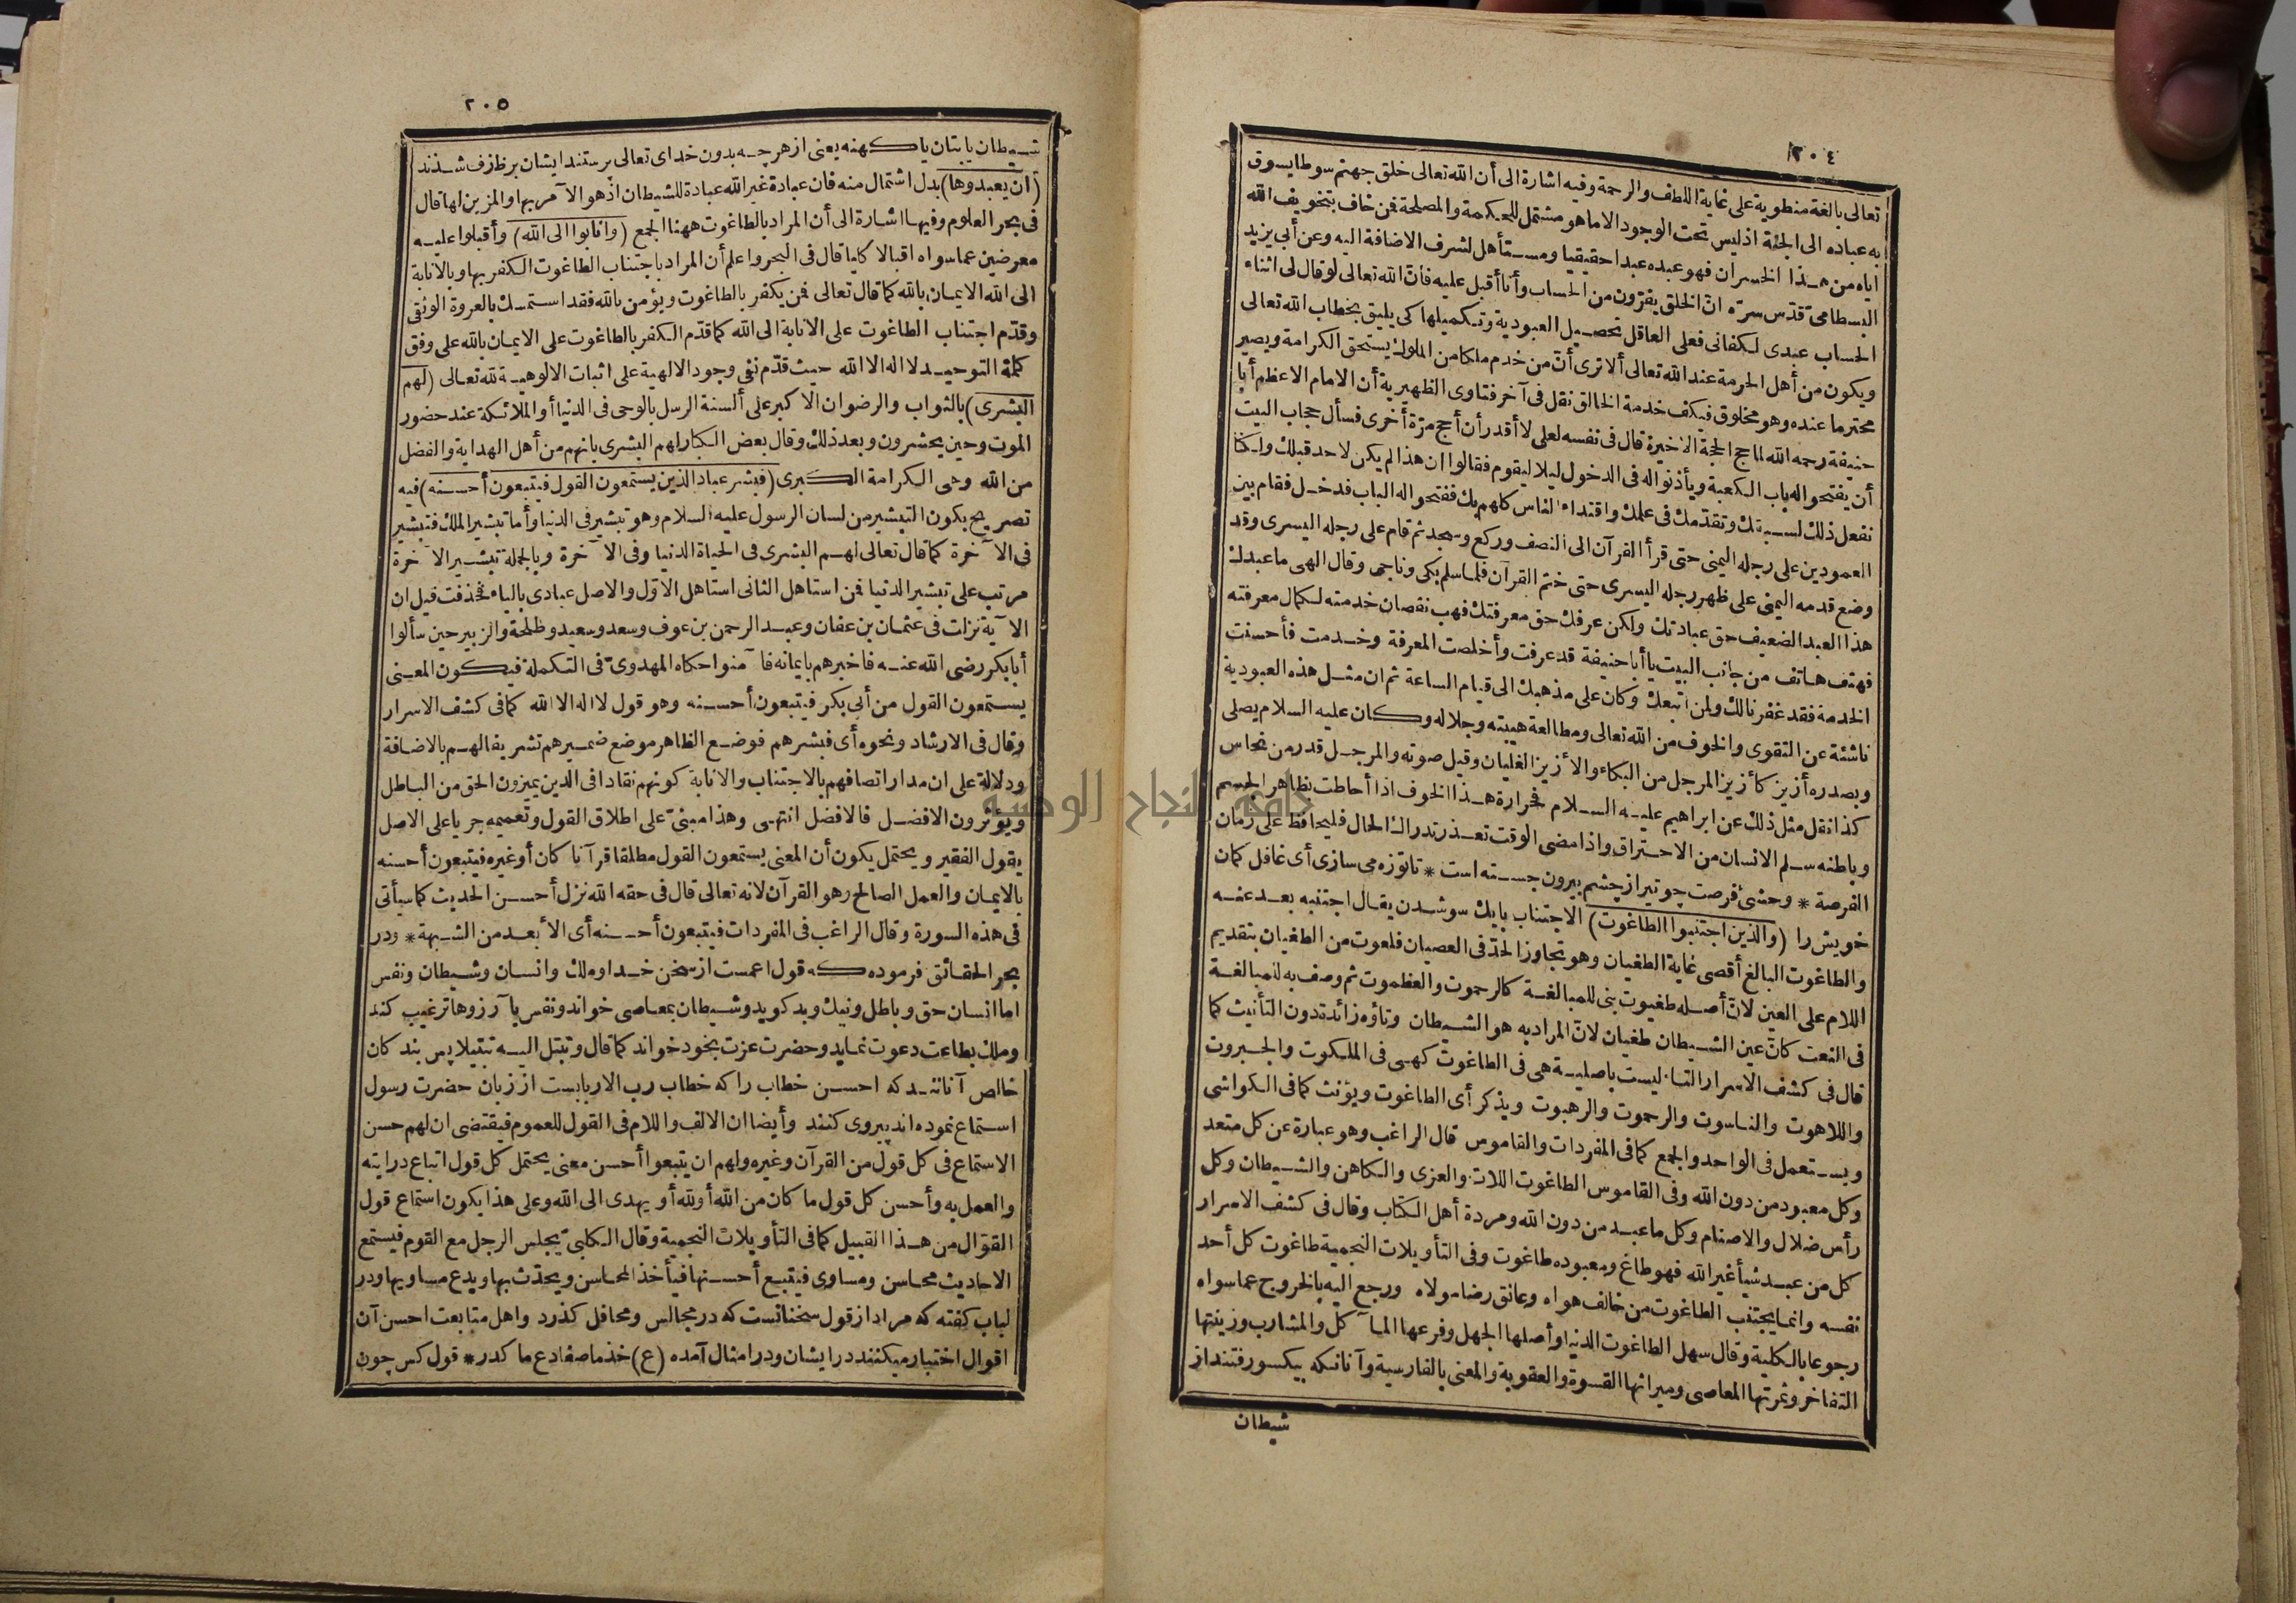 ٢٠٤
تعالى بالغة منطوية على غاية اللطف والرحمة وفيه اشارة الى أن الله تعالى خلق جهنم سوطا يسوق
به عباده الى الجنة اذ ليس تحت الوجود الا ما هو مشتمل للحكمة والمصلحة فمن خاف بتخويف الله
اياه من هذا الخسران فهو عبده عبدا حقيقيا ومستأهل لشرف الاضافة اليه وعن أبي يزيد
البسطامىّ قدّس سرّه انّ الخلق يفرّون من الحساب وأنا أقبل عليه فانّ الله تعالى لو قال لى اثناء
الحساب عبدى لكفانى فعلى العاقل تحصيل العبودية وتكميلها كى يليق بخطاب الله تعالى
ويكون من أهل الحرمة عند الله تعالى ألا ترى أنّ من خدم ملكا من الملوك يستحق الكرامة ويصير
محترما عنده وهو مخلوق فكيف خدمة الخالق نقل فى آخر فتاوى الظهيرية أن الامام الاعظم أبا
حنيفة رحمه الله لما حج الحجة الاخيرة قال فى نفسه لعلى لا أقدر أن أحج مرّة أخرى فسأل حجاب البيت
أن يفتحوا له باب الكعبة ويأذنوا له فى الدخول ليلا ليقوم فقالوا ان هذا لم يكن لاحد قبلك ولكنا
نفعل ذلك لسبقك وتقدّمك فى علمك واقتداء الناس كلهم بك ففتحوا له الباب فدخل فقام بين
العمودين على رجله اليمنى حتى قرأ القرآن الى النصف وركع وسجد ثم قام على رجله اليسرى وقد
وضع قدمه اليمنى على ظهر رجله اليسرى حتى ختم القرآن فلما سلم بكى وناجى وقال الهى ما عبدك
هذا العبد الضعيف حق عبادتك ولكن عرفك حق معرفتك فهب نقصان خدمته لكمال معرفته
فهتف هاتف من جانب البيت يا أبا حنيفة قد عرفت وأخلصت المعرفة وخدمت فأحسنت
الخدمة فقد غفرنا لك ولمن اتبعك وكان على مذهبك الى قيام الساعة ثم ان مثل هذه العبودية
ناشئة عن التقوى والخوف من الله تعالى ومطالعة هيبته وجلاله وكان عليه السلام يصلى
وبصدره أزيز كأزيز المرجل من البكاء والأزيز الغليان وقيل صوته والمرجل قدر من نحاس
كذا نقل مثل ذلك عن ابراهيم عليه السلام فحرارة هذا الخوف اذا أحاطت بظاهر الجسم
وباطنه سلم الانسان من الاحتراق واذا مضى الوقت تعذر تدارك الحال فليحافظ على زمان
الفرصة * وحشئ فرصت چو تير از چشم بيرون جسته است * تا توزه مى سازى أى غافل كمان
خويش را (والذين اجتنبوا الطاغوت) الاجتناب بايك سو شدن يقال اجتنبه بعد عنه
والطاغوت البالغ أقصى غاية الطغيان وهو تجاوز الحدّ فى العصيان فلعوت من الطغيان بتقديم
اللام على العين لانّ أصله طغيوت بنى للمبالغة كالرحموت والعظموت ثم وصف به للمبالغة
فى النعت كانّ عين الشيطان طغيان لانّ المراد به هو الشيطان وتاؤه زائدة دون التأنيث كما
قال فى كشف الاسرار التاء ليست باصلية هى فى الطاغوت كهى فى الملكوت والجبروت
واللاهوت والناسوت والرحموت والرهبوت ويذكر أى الطاغوت ويؤنث كما فى الكواشى
ويستعمل فى الواحد والجمع كما فى المفردات والقاموس قال الراغب وهو عبارة عن كل متعد
وكل معبود من دون الله وفى القاموس الطاغوت اللات والعزى والكاهن والشيطان وكل
رأس ضلال والاصنام وكل ما عبد من دون الله ومردة أهل الكتاب وقال فى كشف الاسرار
كل من عبد شيأ غير الله فهو طاغ ومعبوده طاغوت وفى التأويلات النجمية طاغوت كل أحد
نفسه وانما يجتنب الطاغوت من خالف هواه وعانق رضا مولاه ورجع اليه بالخروج عما سواه
رجوعا بالكلية وقال سهل الطاغوت الدنيا وأصلها الجهل وفرعها المآكل والمشارب وزينتها
التفاخر وثمرتها المعاصى وميراثها القسوة والعقوبة والمعنى بالفارسية وآنانكه بيكسو رفتند از
شيطان
٢٠٥
شيطان يا بتان يا كهنه يعنى از هر چه بدون خداى تعالى پرستند ايشان برطرف شدند
(أن يعبدوها) بدل اشتمال منه فان عبادة غير الله عبادة للشيطان اذ هو الآمر بها والمزين لها قال
فى بحر العلوم وفيها اشارة الى أن المراد بالطاغوت ههنا الجمع (وأنابوا الى الله) وأقبلوا عليه
معرضين عما سواه اقبالا كليا قال فى البحر واعلم أن المراد باجتناب الطاغوت الكفر بها وبالانابة
الى الله الايمان بالله كما قال تعالى فمن يكفر بالطاغوت ويؤمن بالله فقد استمسك بالعروة الوثقى
وقدّم اجتناب الطاغوت على الانابة الى الله كما قدّم الكفر بالطاغوت على الايمان بالله على وفق
كلمة التوحيد لا اله الا الله حيث قدّم نفى وجود الالهية على اثبات الالوهية لله تعالى (لهم
البشرى) بالثواب والرضوان الاكبر على ألسنة الرسل بالوحى فى الدنيا أو الملائكة عند حضور
الموت وحين يحشرون وبعد ذلك وقال بعض الكبار لهم البشرى بانهم من أهل الهداية والفضل
من الله وهى الكرامة الكبرى (فبشر عباد الذين يستمعون القول فيتبعون أحسنه) فيه
تصريح بكون التبشير من لسان الرسول عليه السلام وهو تبشير فى الدنيا وأما تبشير الملك فتبشير
فى الآخرة كما قال تعالى لهم البشرى فى الحياة الدنيا وفى الآخرة وبالجملة تبشير الآخرة
مرتب على تبشير الدنيا فمن استاهل الثانى استاهل الاوّل والاصل عبادى بالياء فحذفت قيل ان
الآية نزلت فى عثمان بن عفان وعبد الرحمن بن عوف وسعد وسعيد وطلحة والزبير حين سألوا
أبا بكر رضى الله عنه فاخبرهم بايمانه فآمنوا حكاه المهدوىّ فى التكملة فيكون المعنى
يستمعون القول من أبى بكر فيتبعون أحسنه وهو قول لا اله الا الله كما فى كشف الاسرار
وقال فى الارشاد ونحوه أى فبشرهم فوضع الظاهر موضع ضميرهم تشريفا لهم بالاضافة
ودلالة على ان مدار اتصافهم بالاجتناب والانابة كونهم نقادا فى الدين يميزون الحق من الباطل
ويؤثرون الافضل فالافضل انتهى وهذا مبنىّ على اطلاق القول وتعميمه جريا على الاصل
يقول الفقير ويحتمل يكون أن المعنى يستمعون القول مطلقا قرآنا كان أو غيره فيتبعون أحسنه
بالايمان والعمل الصالح وهو القرآن لانه تعالى قال فى حقه الله نزل أحسن الحديث كما سيأتى
فى هذه السورة وقال الراغب فى المفردات فيتبعون أحسنه أى الأبعد من الشبهة * ودر
بحر الحقائق فرموده كه قول اعمست از سخن خدا وملك وانسان وشيطان ونفس
اما انسان حق وباطل ونيك وبد كويد وشيطان بمعاصى خواند ونفس بآرزوها ترغيب كند
وملك بطاعت دعوت نمايد وحضرت عزت بخود خواند كما قال وتبتل اليه تبتيلا پس بندكان
خالص آنانند كه احسن خطاب را كه خطاب رب الاربابست از زبان حضرت رسول
استماع نموده اند پيروى كنند وأيضا ان الالف واللام فى القول للعموم فيقتضى ان لهم حسن
الاستماع فى كل قول من القرآن وغيره ولهم ان يتبعوا أحسن معنى يحتمل كل قول اتباع درايته
والعمل به وأحسن كل قول ما كان من الله أو لله أو يهدى الى الله وعلى هذا يكون استماع قول
القوّال من هذا القبيل كما فى التأويلات النجمية وقال الكلبىّ يجلس الرجل مع القوم فيستمع
الاحاديث محاسن ومساوى فيتبع أحسنها فيأخذ المحاسن ويحدّث بها ويدع مساويها ودر
لباب كفته كه مراد از قول سخنانست كه در مجالس ومحافل كذرد واهل متابعت احسن آن
اقوال اختيار ميكنند در ايشان ودر امثال آمده (ع) خذ ما صفا دع ما كدر * قول كس چون